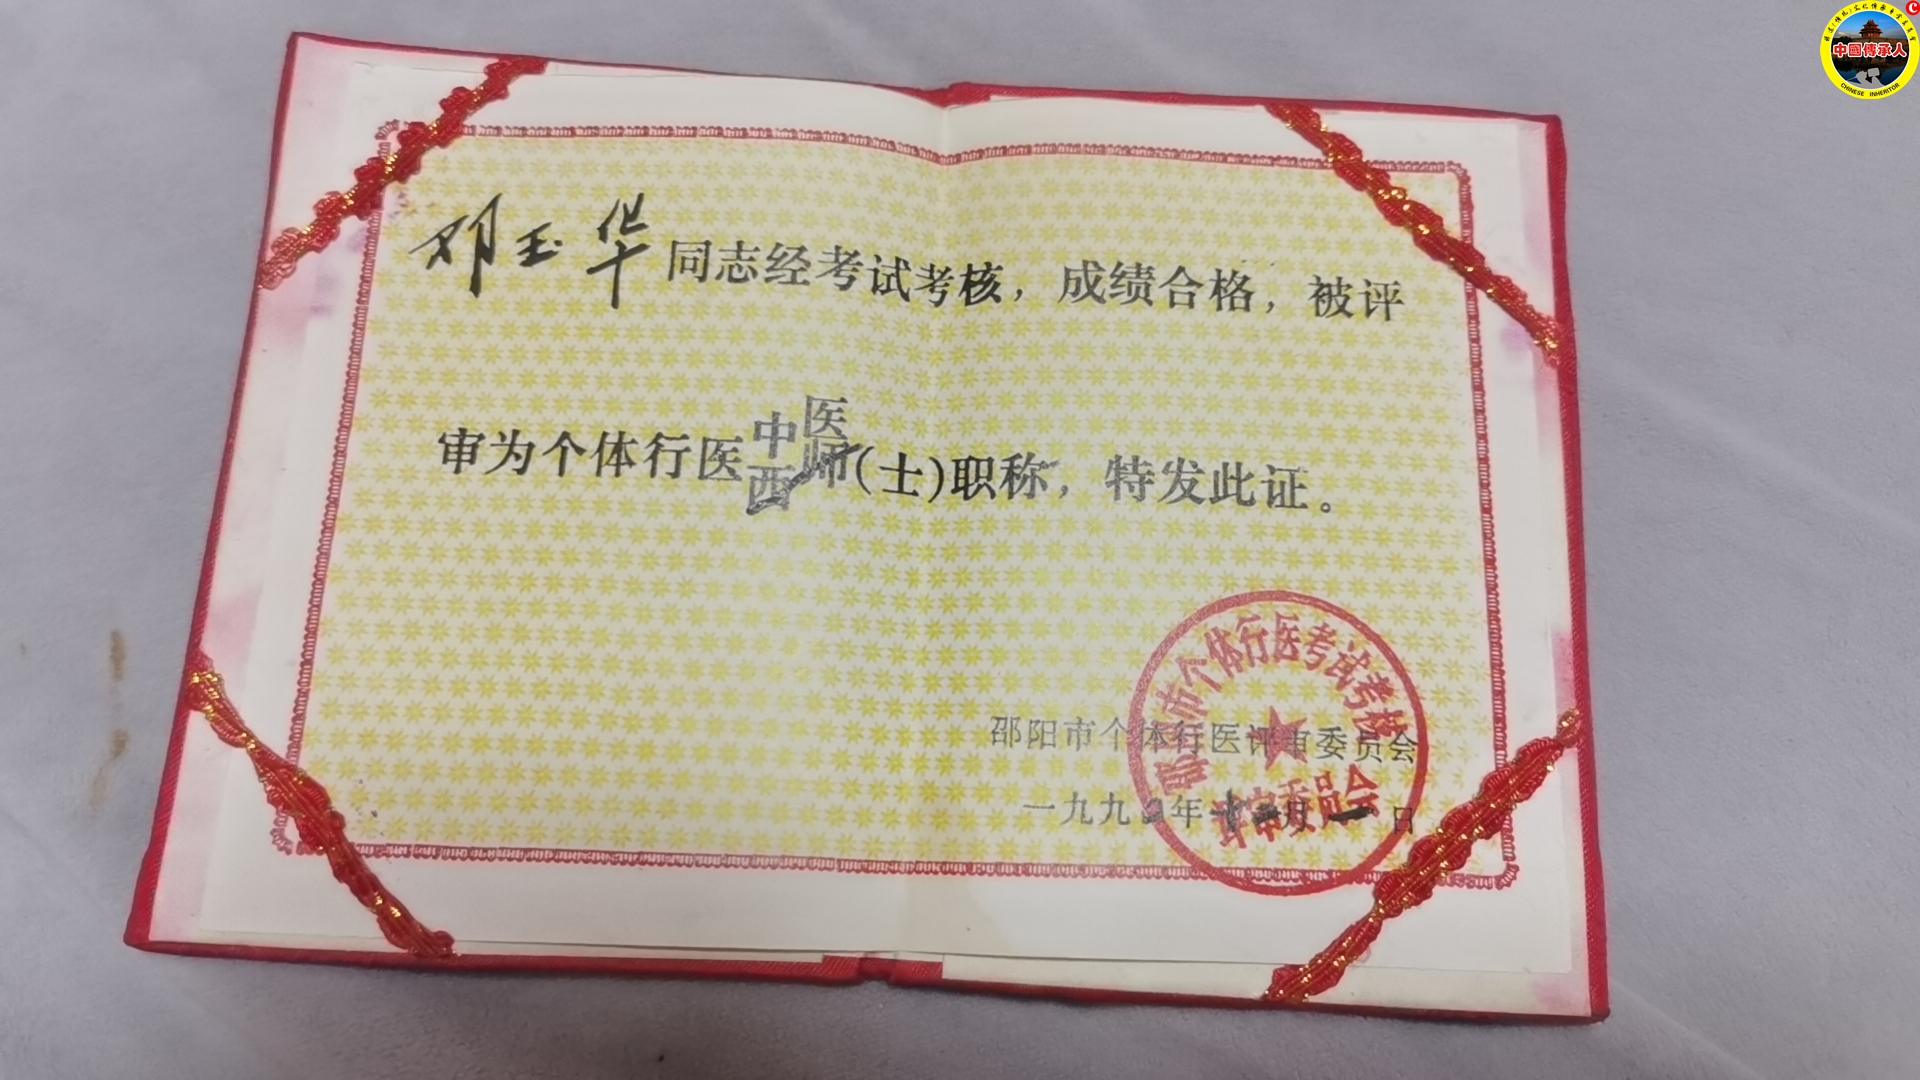 邓玉华同志经考试考核，成绩合格，被评
审为个体行医中西医师(士)职称，特发此证。
邵阳市个体行医评审委员会
一九九 年十二月一日
邵阳市个体行医考试考核
评审委员会
中國傳承人
CHINESE INHERITOR